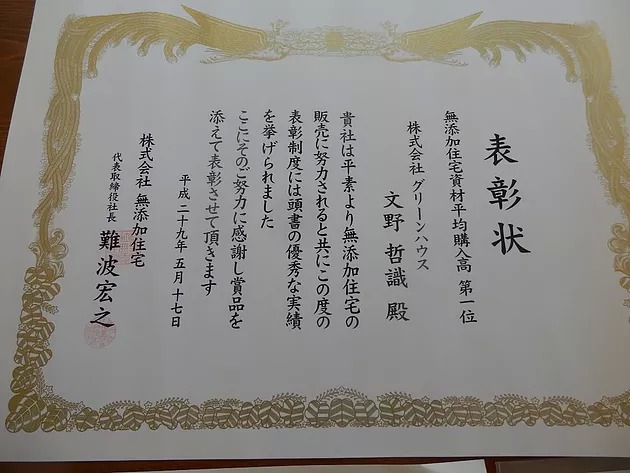 表彰状
無添加住宅資材平均購入高 第一位
株式会社 グリーンハウス
文野 哲識 殿
貴社は平素より無添加住宅の
販売に努力されると共にこの度の
表彰制度には頭書の優秀な実績
を挙げられました
ここにそのご努力に感謝し賞品を
添えて表彰させて頂きます
平成二十九年 五月 十七日
株式会社 無添加住宅
代表取締役社長 難波宏之